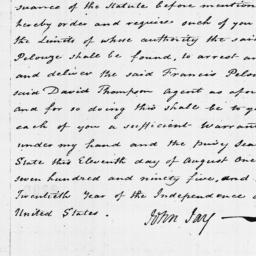 suance of the Statute before mention
hereby order and require such of you
the Limits of whose authority the sai
Pelouze shall be found, to arrest an
and deliver the said Francis Pelou
said David Thompson agent as afor
and for so doing this shall be to y
each of you a sufficient Warran
under my hand and the privy Sea
State this Eleventh day of August One
seven hundred and ninety five, and
Twentieth Year of the Independence o
United States.
John Jay